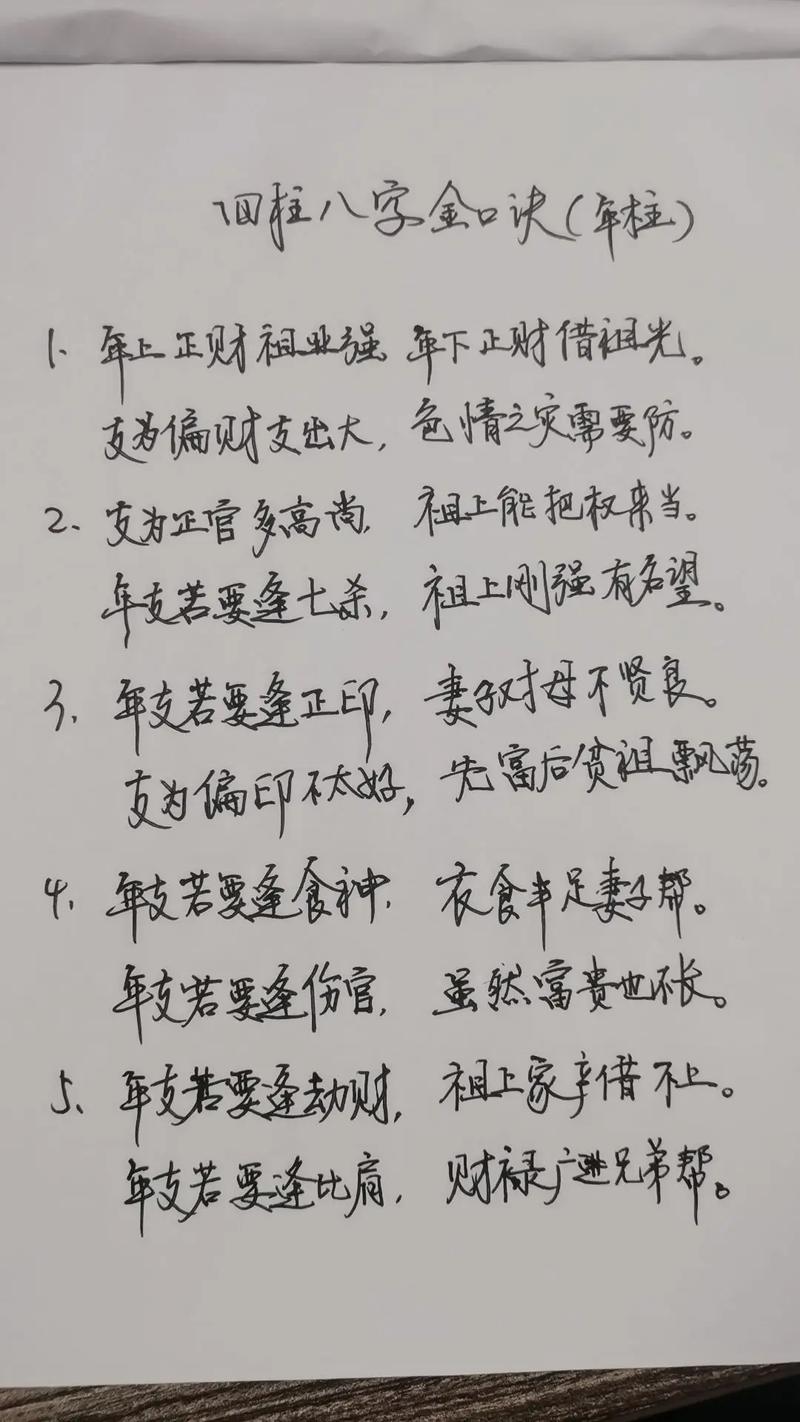 四柱八字金口诀(年柱)
1、年上正财祖业强 年下正财借祖光。
支为偏财支出大,色情之灾需要防。
2、支为正官多高尚,祖上能把权来当。
年支若要逢七杀,祖上刚强有名望。
3、年支若要逢正印,妻子对母不贤良。
支为偏印不太好,先富后贫祖飘荡。
4、年支若要逢食神,衣食丰足妻子帮。
年支若要逢伤官,虽然富贵也不长。
5、年支若要逢劫财,祖上家产借不上。
年支若要逢比肩,财禄广进兄弟帮。